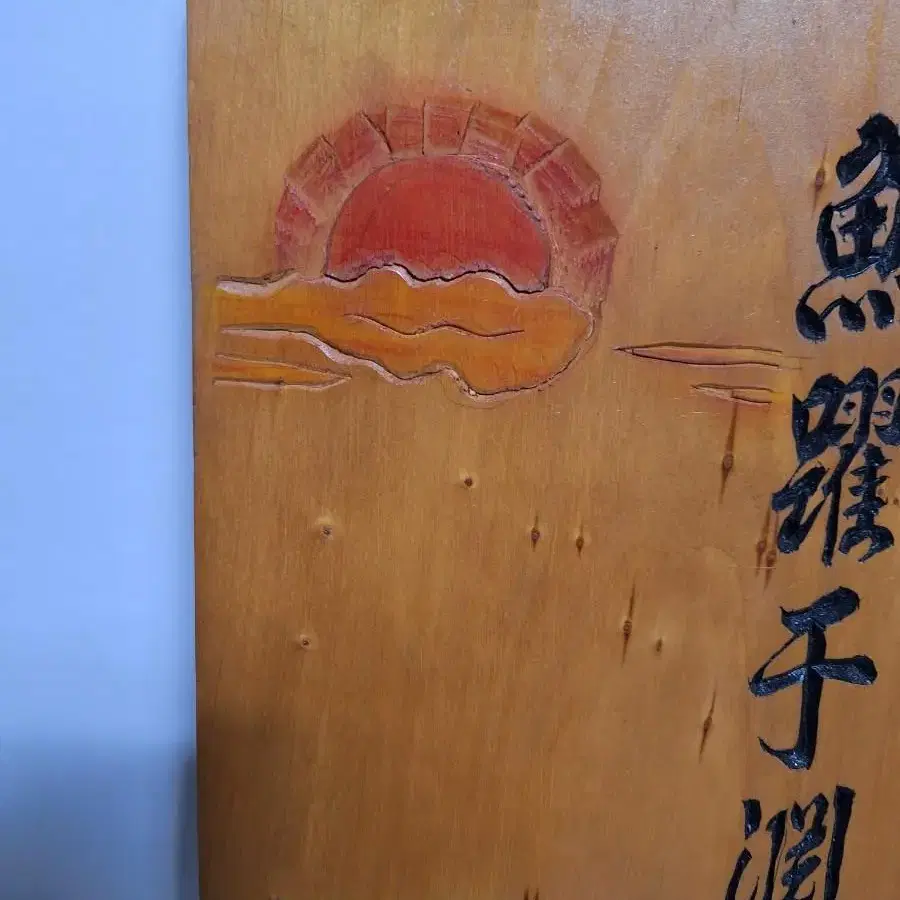 魚躍于淵